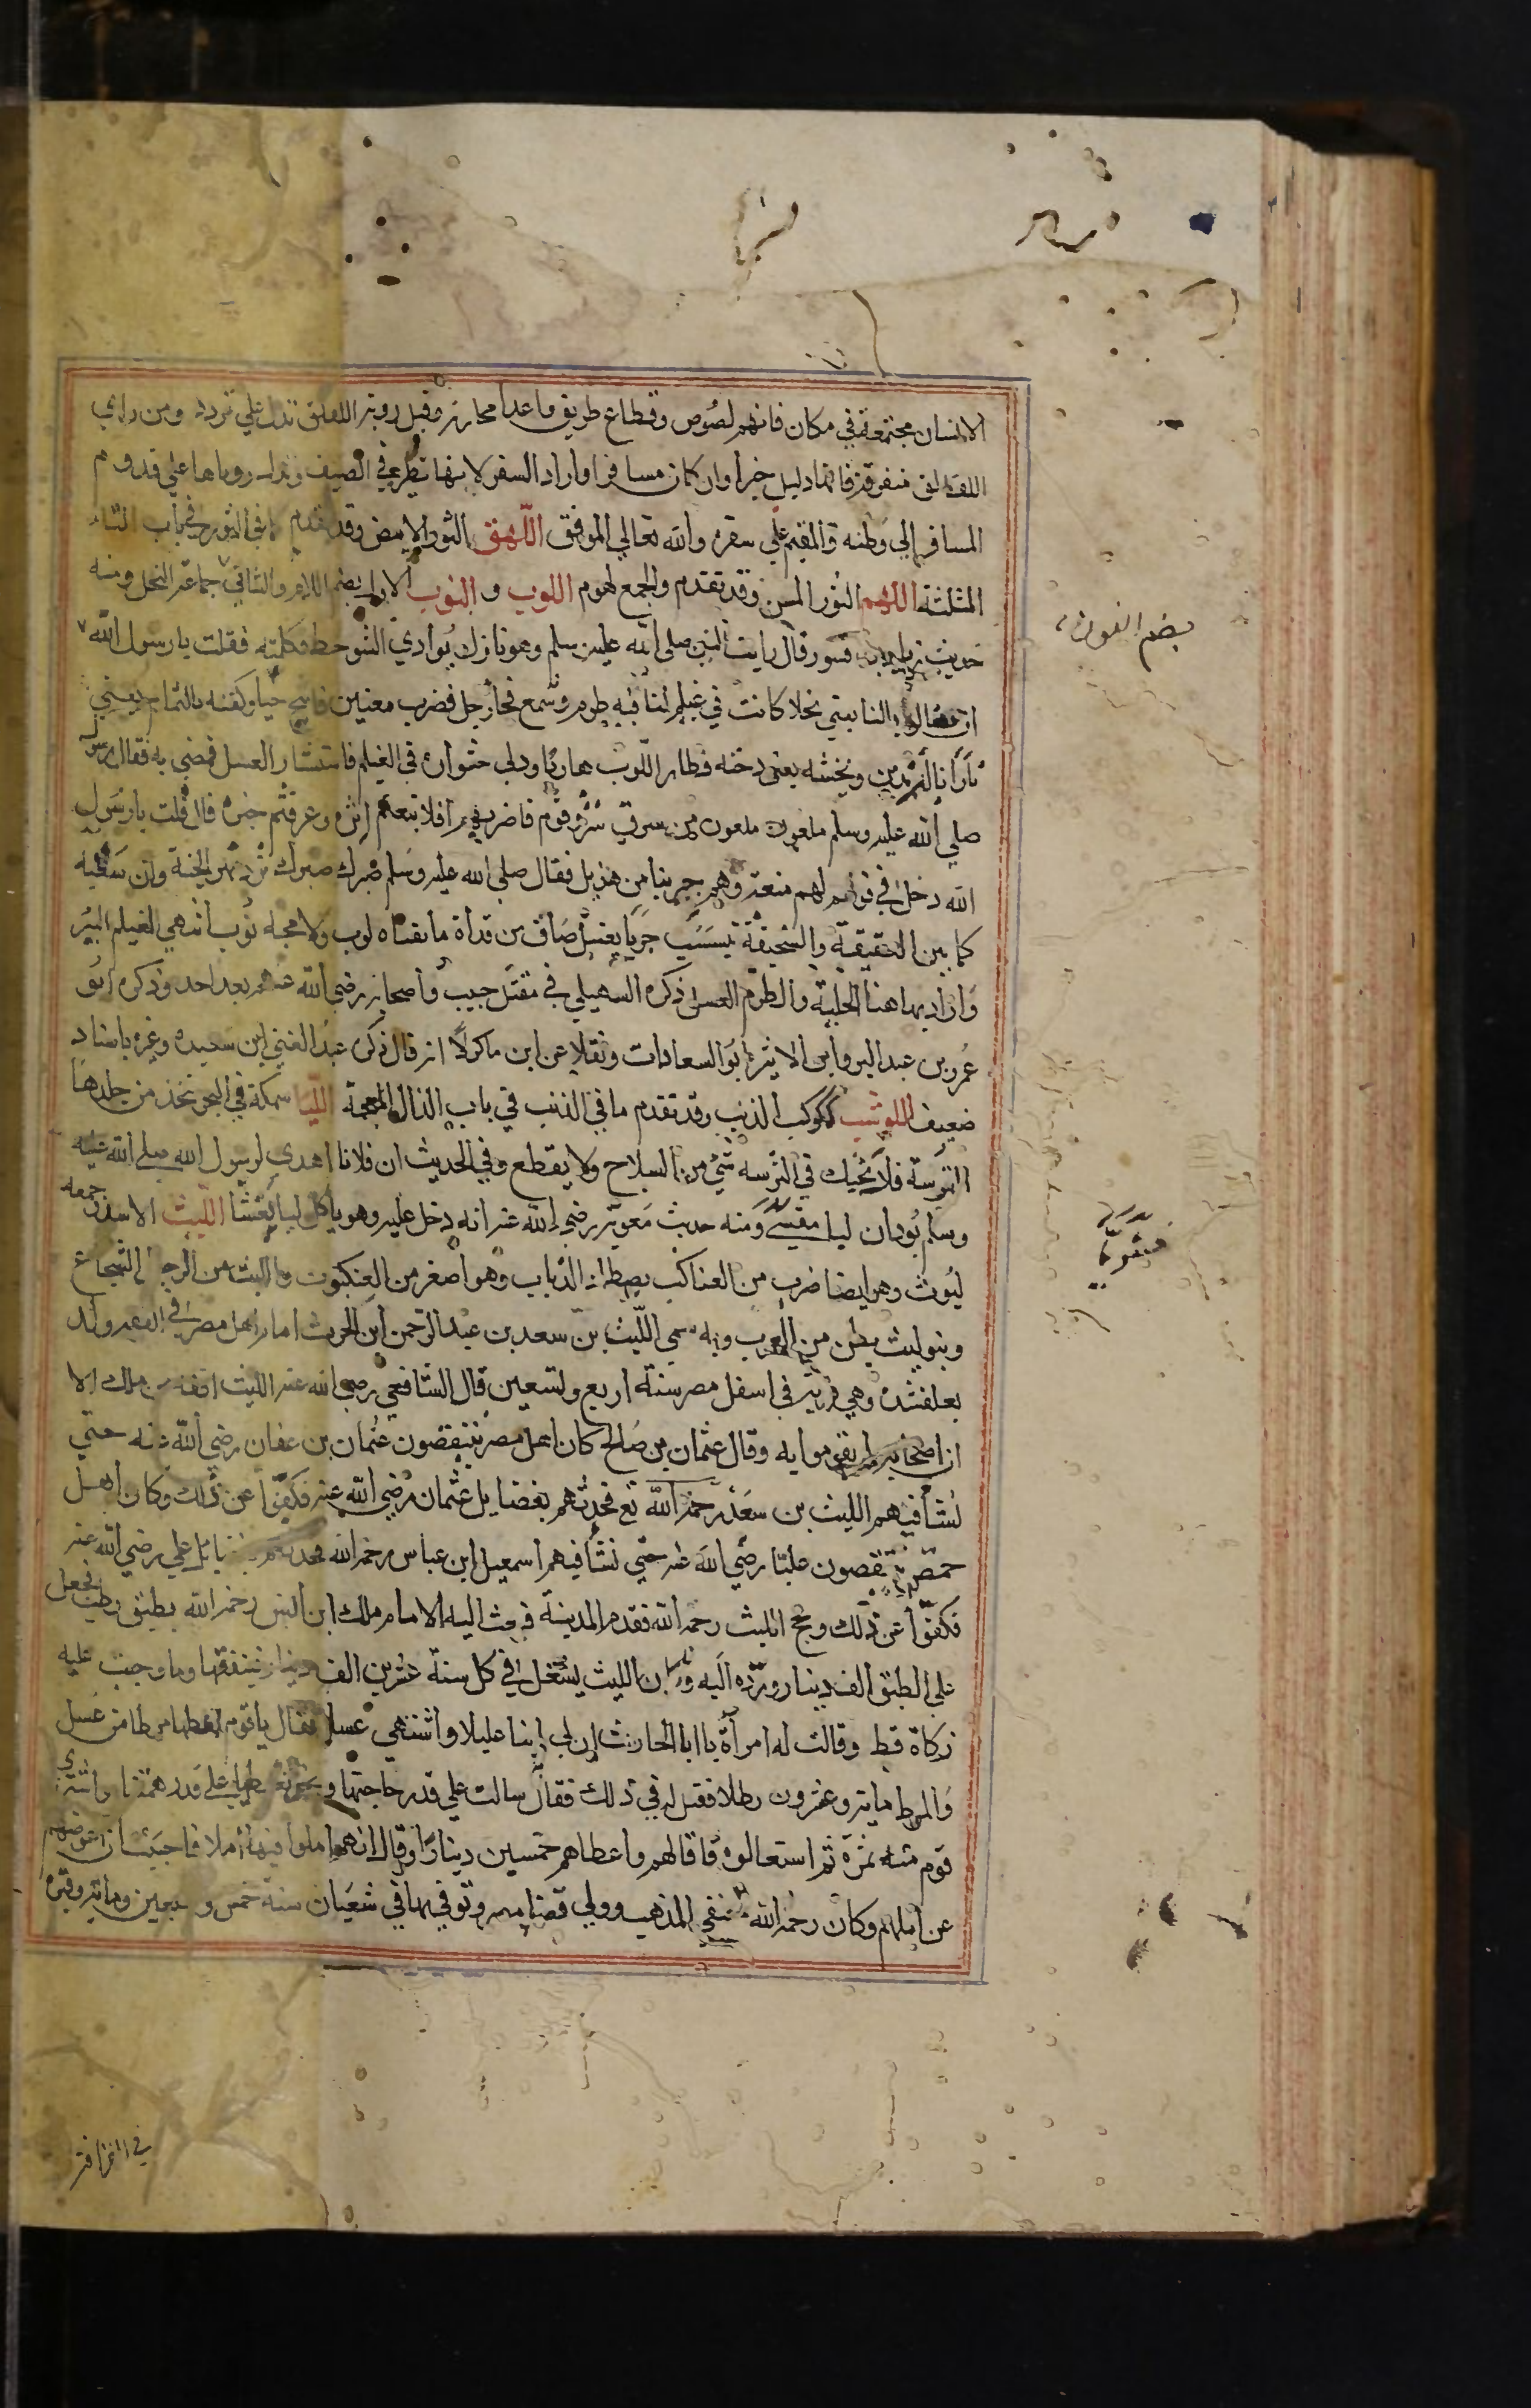 الانسان مجتمعة في مكان فانهم لصوص وقطاع طريق واعدا محاربة وقيل روية اللقلق تدل علي تردد ومن راي
اللقالق متفرقة فانها دليل خير اوان كان مسافرا او اراد السفر لانها تظهر في الصيف وتدل روياها علي قدوم
المسافر الي وطنه والمقيم علي سفره والله تعالي الموفق اللهق الثور الابيض وقد تقدم ما في الثور في باب الثاء
المثلثة اللهم الثور المسن وقد تقدم والجمع لهوم اللوب و النوب الاول بضم اللام والثاني جماعة النحل ومنه
بضم النون
حديث قسور قال رايت النبي صلى الله عليه وسلم وهو نازل بوادي الشوحط فكلمته فقلت يا رسول الله
ان النا يعني نحلا كانت في غيلم لنا فيه طرم وشمع فجا رجل فضرب ميتين فانتج حيا وكفنه بالثمام يعني
نارا بالزندين ونحشه يعني دخنه فطار اللوب هاربا ودلي مشواره في الغيلم فاشتار العسل فمضي به فقال
صلي الله عليه وسلم ملعون ملعون من سرق شرو قوم فاضر بهم افلا تبعتم اثره وعرفتم خبره قال قلت يا رسول
الله دخل في قوم لهم منعة وهم جيرننا من هذيل فقال صلي الله عليه وسلم صبرك صبرك ترد نهر الجنة وان سعته
كما بين اللقيقة والسحيقة يتسبسب جريا بعسل صاف من قذاة ما تقياه لوب ولا مجه نوب اذ هي الغيلم البير
واراد بها هنا الخلية والطرم العسل ذكره السهيلي في مقتل خبيب واصحابه رضي الله عنهم بعد احد وذكره ابو
عمرو بن عبد البر وابن الاثير ابو السعادات ونقلا عن ابن ماكولا انه قال ذكره عبد الغني ابن سعيد وغيره باسناد
ضعيف اللوشب ككوكب الذيب وقد تقدم ما في الذيب في باب الذال المعجمة الليا سمكة في البحر تتخذ من جلدها
الترسة فلا يحيك في الترسه شي من السلاح ولا يقطع وفي الحديث ان فلانا اهدي لرسول الله صلي الله عليه
وسلم بودان ليا مقشي ومنه حديث معوية رضي الله عنه انه دخل عليه وهو ياكل ليا مقشا الليث الاسد جمعه
ليوث وهو ايضا ضرب من العناكب يصطاد الذباب وهو اصغر من العنكبوت والليث من الرجال الشجاع
وبنو ليث بطن من العرب وبه سمي الليث بن سعد بن عبد الرحمن ابن الحرث امام اهل مصر في الفقه ولد
بقلقشنده وهي قرية في اسفل مصر سنة اربع وتسعين قال الشافعي رضي الله عنه الليث افقه من ملك الا
ان اصحابه لم يقوموا به وقال عثمان بن صالح كان اهل مصر ينتقصون عثمان بن عفان رضي الله عنه حتي
نشا فيهم الليث بن سعد رحمه الله تع فحدثهم بفضايل عثمان رضي الله عنه فكفوا عن ذلك وكان اهل
حمص ينتقصون عليا رضي الله عنه حتي نشا فيهم اسمعيل ابن عباس رحمه الله فحدثهم بفضايل علي رضي الله عنه
فكفوا عن ذلك وحج الليث رحمه الله فقدم المدينة فبعث اليه الامام ملك ابن انس رحمه الله بطبق رطب فجعل
علي الطبق الف دينار ورده اليه وكان الليث يستغل في كل سنة عشرين الف دينار ينفقها وما وجبت عليه
زكاة قط وقالت له امراة يا ابا الحارث ان لي ابنا عليلا واشتهي عسلا فقال يا قوم اعطها مرطا من عسل
والمرط ماية وعشرون رطلا فقيل له في ذلك فقال سالت علي قدر حاجتها ونحن نعطيها علي قدر همتنا واشتري
قوم منه ثمرة ثم استقالوه فاقالهم واعطاهم خمسين دينارا وقال انهم املوا فيها املا فاحببت ان اعوضهم
عن املهم وكان رحمه الله حنفي المذهب وولي قضا مصر وتوفي بها في شعبان سنة خمس وسبعين وماية وقبره
في القرافة